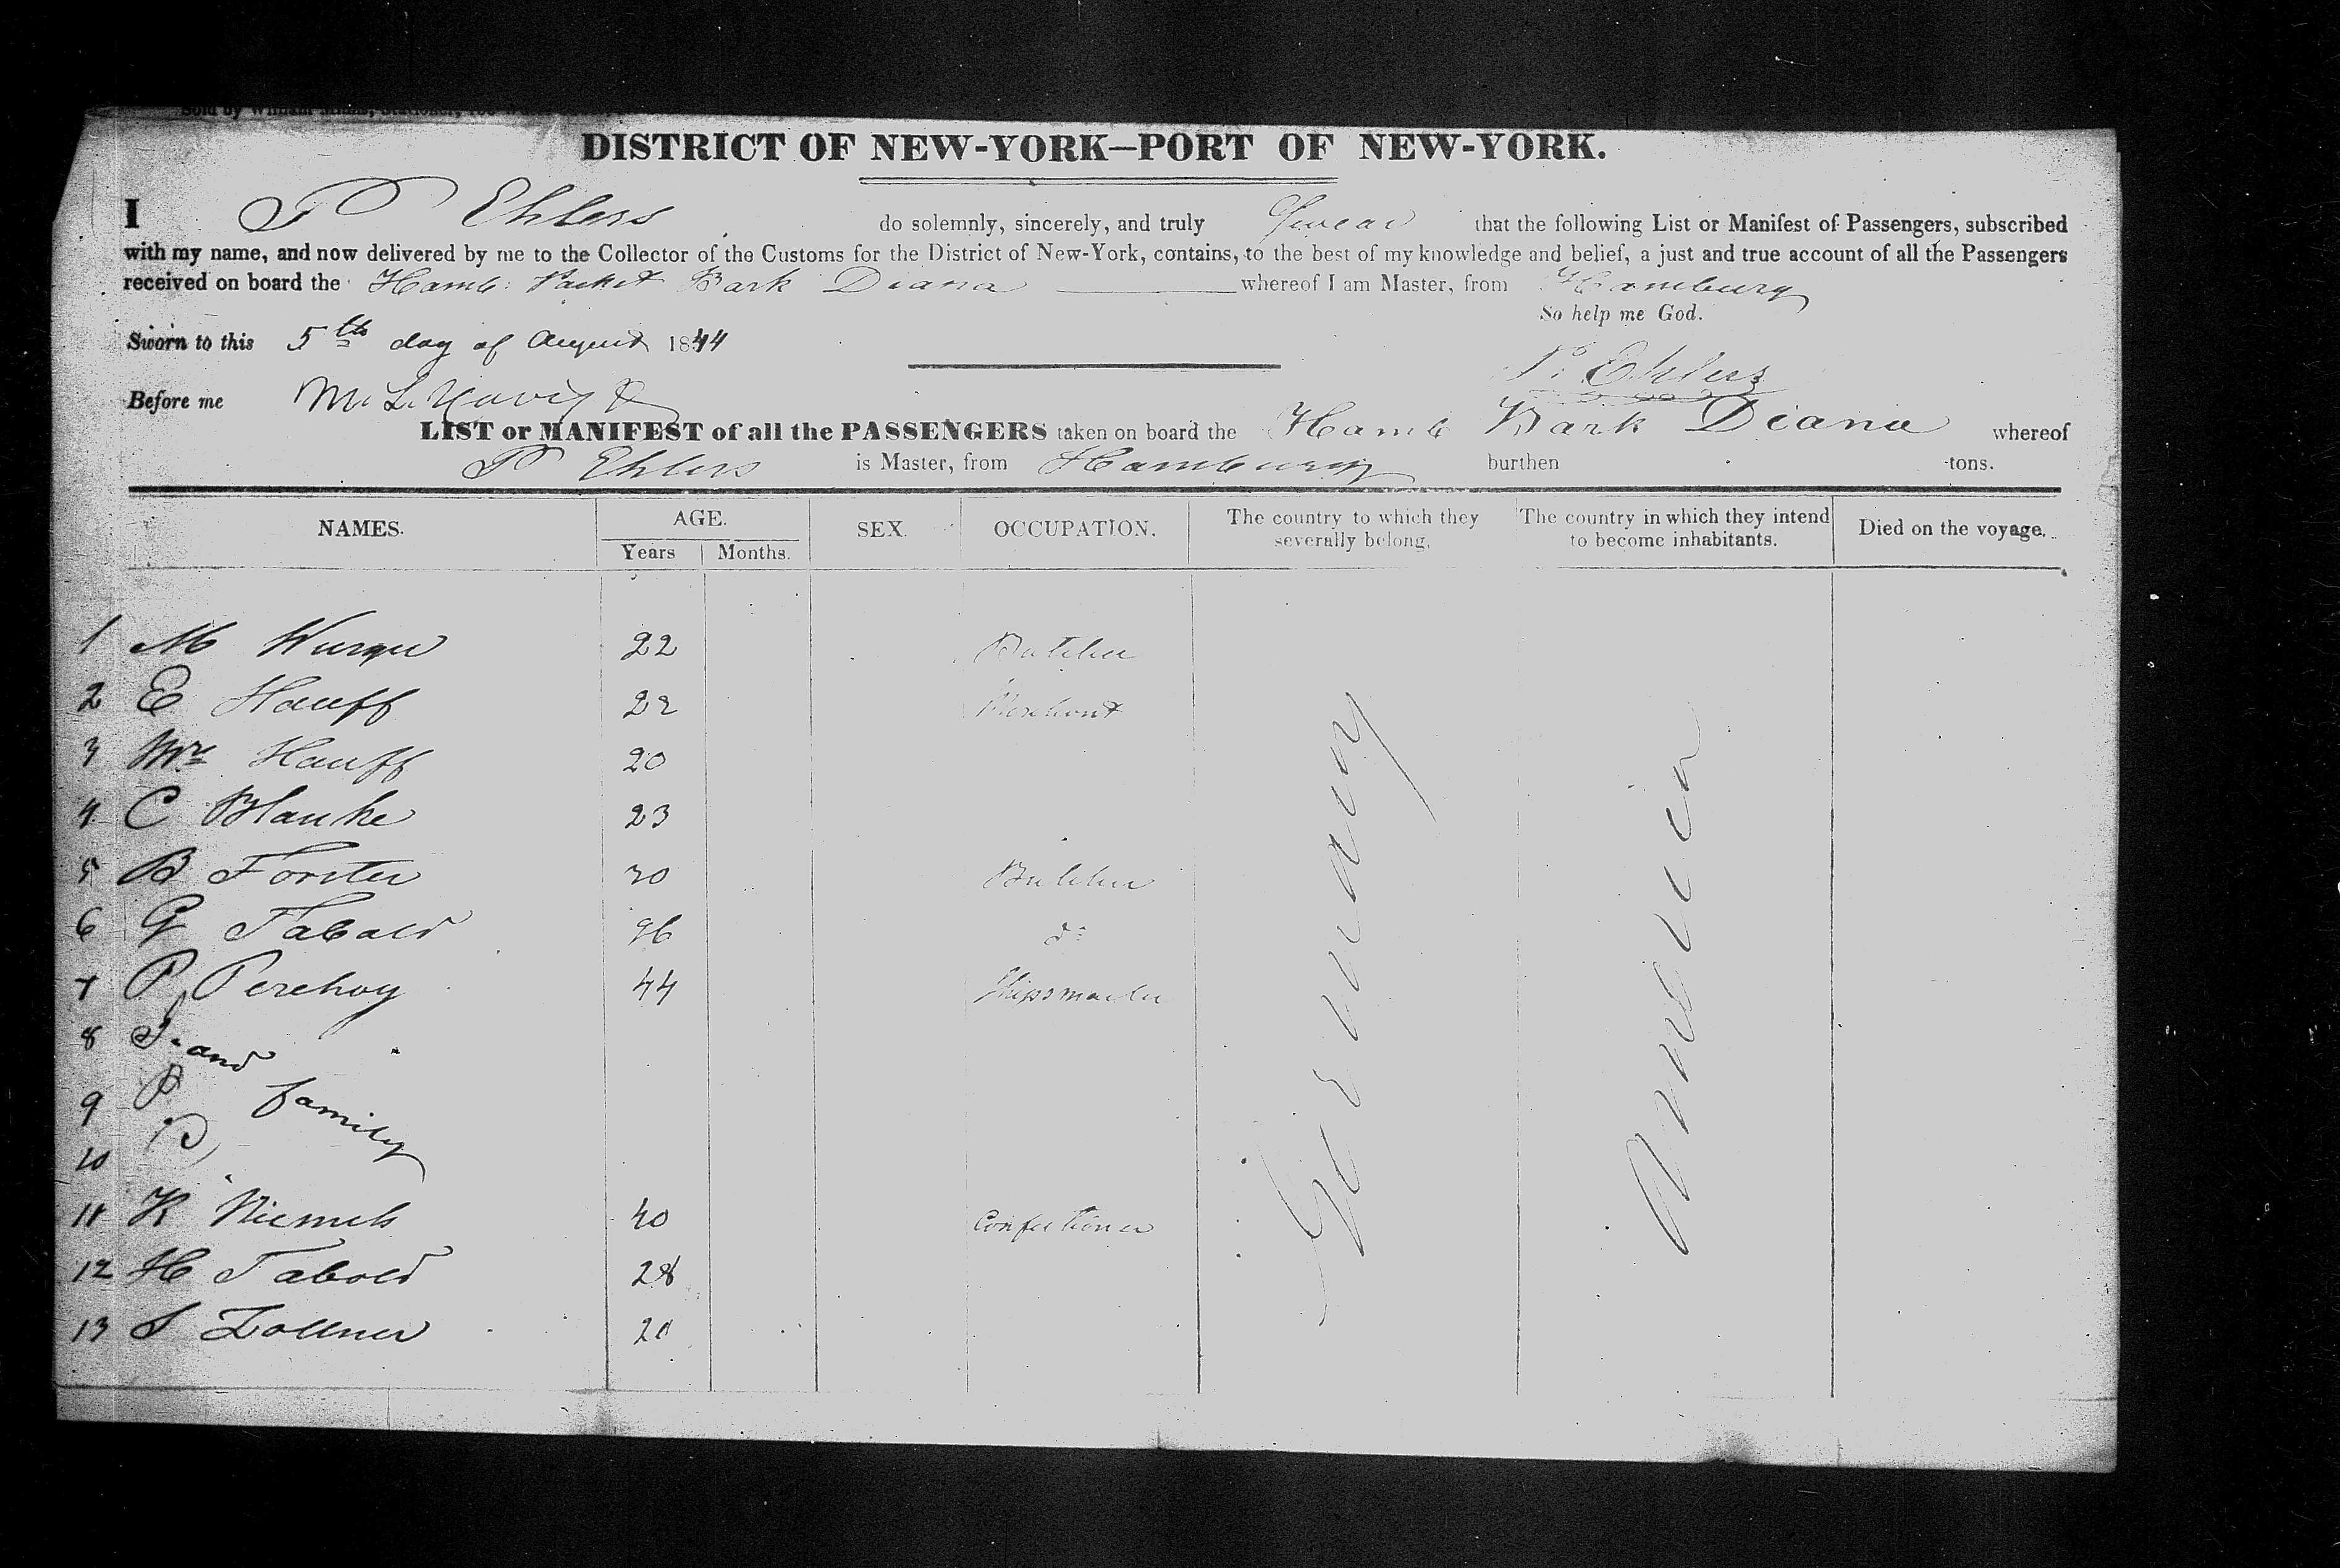 DISTRICT OF NEW-YORK—PORT OF NEW-YORK.
I P Ehlers do solemnly, sincerely, and truly Swear that the following List or Manifest of Passengers, subscribed
with my name, and now delivered by me to the Collector of the Customs for the District of New-York, contains, to the best of my knowledge and belief, a just and true account of all the Passengers
received on board the Hamb: Packet Bark Diana whereof I am Master, from Hamburg
So help me God.
Sworn to this 5th day of August 1844
P. Ehlers
Before me
LIST or MANIFEST of all the PASSENGERS taken on board the Hamb Bark Diana whereof
P Ehlers is Master, from Hamburg burthen tons.
NAMES. AGE. SEX. OCCUPATION. The country to which they severally belong. The country in which they intend to become inhabitants. Died on the voyage.
Years Months.
1 M 22 Butcher
2 E Hauff 22 Merchant
3 Mrs Hauff 20
4 C Blanke 23
5 B Forster Butcher
6 G Tabold do
7 P Perchoy 44 Shipsmaster
8 and
9 P family
10
11 K Niemels 40 Confectioner
12 H Tabold 28
13 S Zollner
Germany
America